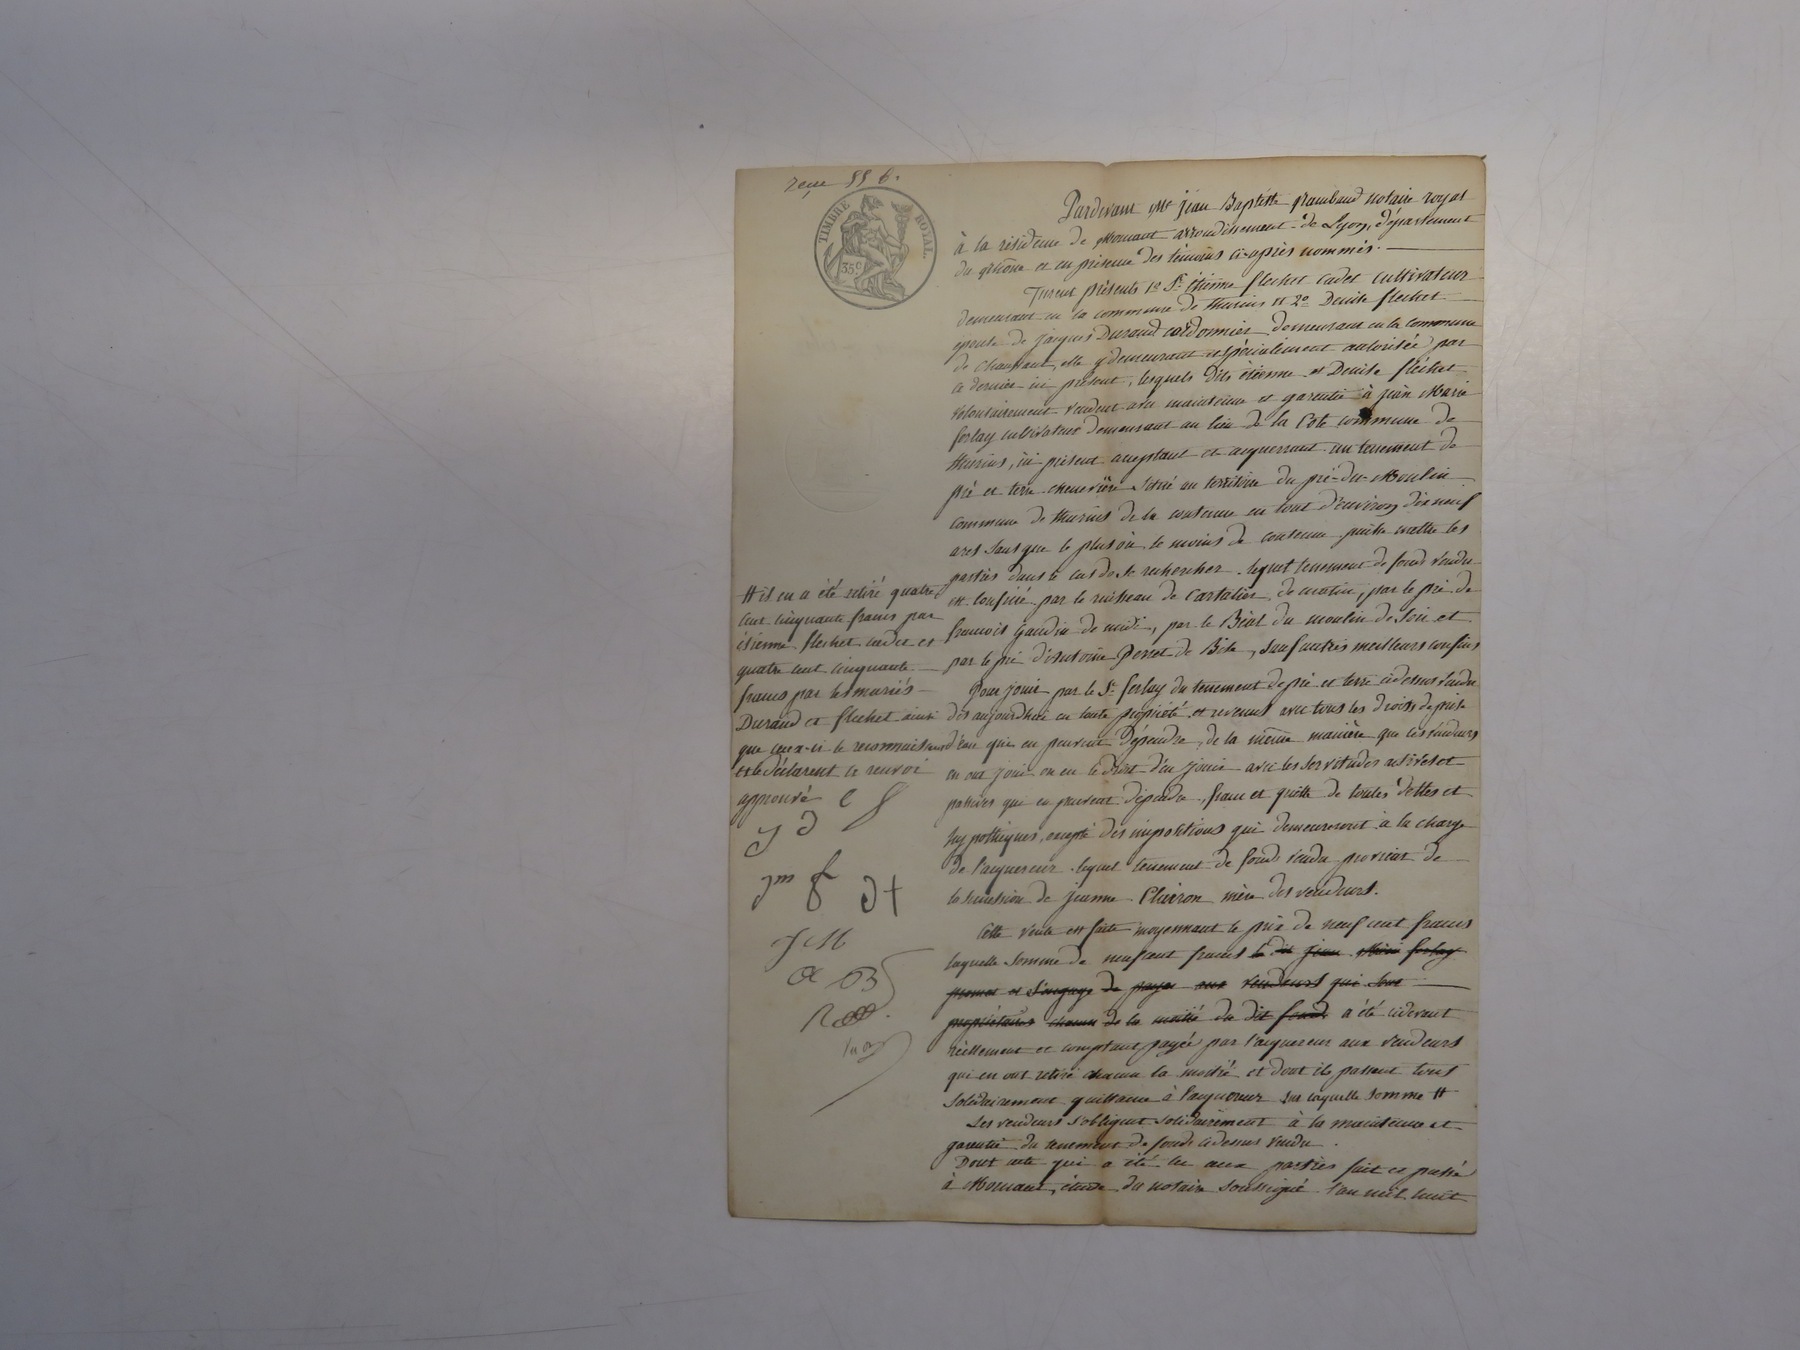 reçu 55 6.
TIMBRE ROYAL
35 c
Pardevant Me jean Baptiste Rambaud notaire royal
à la résidence de Mornant arrondissement de Lyon, département
du Rhône et en présence des témoins ci-après nommés.
Furent présents 1º Sr. étienne flechet cadet cultivateur
demeurant en la commune de thurins et 2º Denise flechet
epouse de jacques Durand cordonnier demeurant en la commune
de Chaussant, elle y demeurant et spécialement autorisée par
ce dernier ici présent, lesquels dits étienne et Denise fléchet
volontairement vendent avec maintenue et garentie à jean Marie
ferlay cultivateur demeurant au lieu de la Côte commune de
thurins, ici présent acceptant et acquerrant un tenement de
pré et terre chenevière situé au territoire du pré-du-Moulin
commune de thurins de la contenue en tout d'environ dix neuf
ares sans que le plus ou le moins de contenue puisse mettre les
parties dans le cas de se rechercher. lequel tenement de fond vendu
est confiné par le ruisseau de Cartalier, de matin, par le pré de
francois gaudin de midi, par le Béal du moulin de soir et
par le pré d'antoine Perret de Bise, sauf autres meilleurs confins
Pour jouir par le Sr. ferlay du tenement de pré et terre cidessus vendu
dès aujourdhui en toute propriété et revenus avec tous les droits de prise
d'eau qui en peuvent dépendre, de la même manière que les vendeurs
en ont joui ou eu le droit d'en jouir avec les servitudes actives et
passives qui en peuvent dépendre, franc et quitte de toutes dettes et
hypothèques, excepté des impositions qui demeureront à la charge
de l'acquereur. lequel tenement de fonds vendu provient de
la succession de jeanne Clairon mère des vendeurs.
Cette vente est faite moyennant le prix de neuf cent francs
laquelle somme de neuf cent francs le dit jean Marie ferlay
promet et s'engage de payer aux vendeurs qui sont
propriétaires chacun de la moitié du dit fonds a été cidevant
réellement et comptant payée par l'acquereur aux vendeurs
qui en ont retiré chacun la moitié et dont ils passent tous
solidairement quittance à l'acquereur sur laquelle somme #
Les vendeurs s'obligent solidairement à la maintenue et
garentie du tenement de fonds cidessus vendu.
Dont acte qui a été lu aux parties fait et passé
à Mornant, étude du notaire soussigné l'an mil huit
# il en a été retiré quatre
cent cinquante francs par
étienne flechet cadet et
quatre cent cinquante
francs par les mariés
Durand et flechet ainsi
que ceux-ci le reconnaissent
et le déclarent ce renvoi
approuvé e f
j d
jm f df